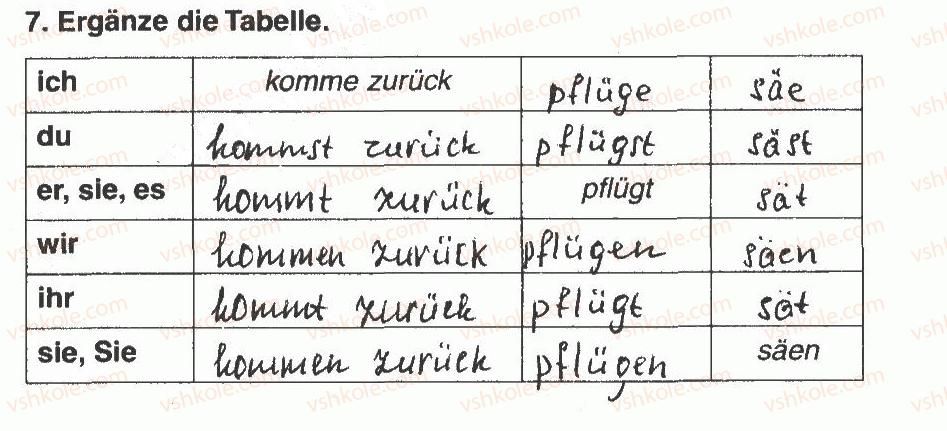 7. Ergänze die Tabelle.
ich komme zurück pflüge säe
du kommst zurück pflügst säst
er, sie, es kommt zurück pflügt sät
wir kommen zurück pflügen säen
ihr kommt zurück pflügt sät
sie, Sie kommen zurück pflügen säen